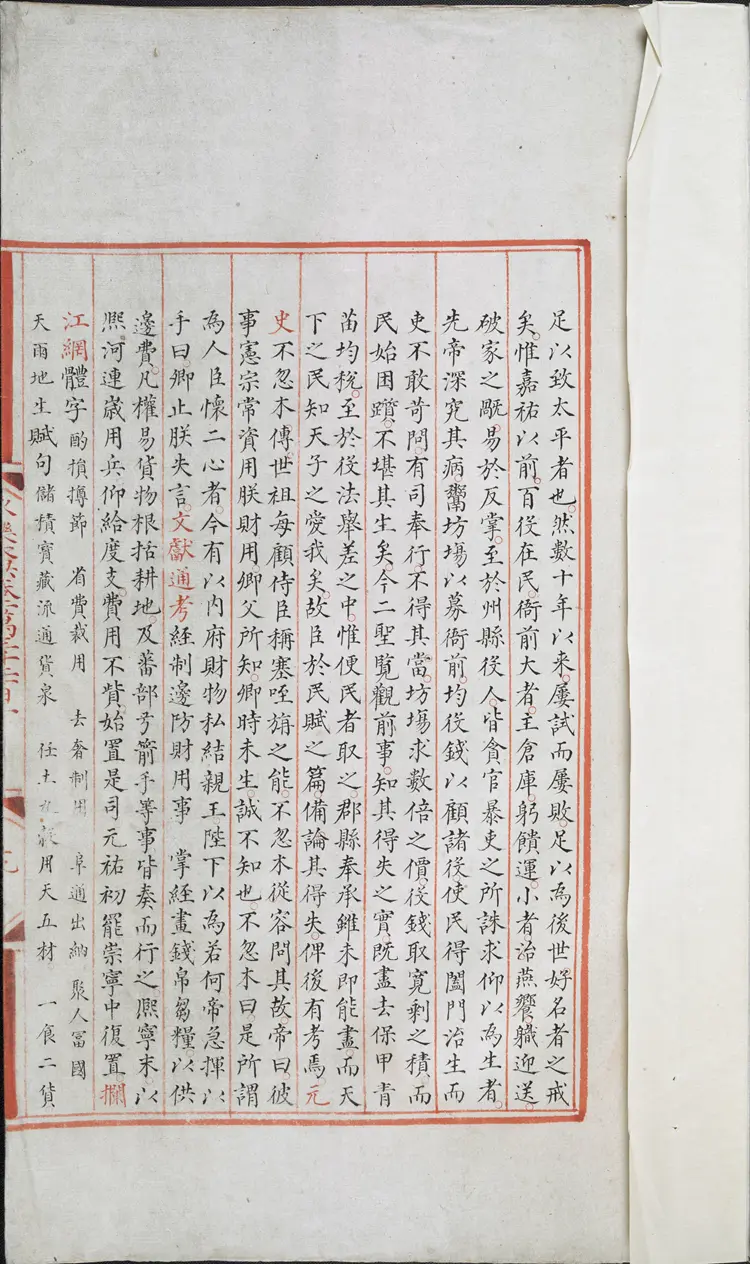 足以致太平者也然數十年以來屢試而屢敗足以為後世好名者之戒
矣惟嘉祐以前百役在民衙前大者主倉庫躬饋運小者治燕饗職迎送
破家之戹易於反掌至於州縣役人皆貪官暴吏之所誅求仰以為生者
先帝深究其病鬻坊塲以募衙前均役錢以顧諸役使民得闔門治生而
吏不敢苛問有司奉行不得其當坊塲求數倍之價役錢取寬剩之積而
民始困躓不堪其生矣今二聖覧觀前事知其得失之實既盡去保甲青
苗均稅至於役法舉差之中惟便民者取之郡縣奉承雖未即能盡而天
下之民知天子之愛我矣故臣於民賦之篇備論其得失俾後有考焉元
史不忽木傳世祖每顧侍臣稱塞咥旃之能不忽木從容問其故帝曰彼
事憲宗常資用朕財用卿父所知卿時未生誠不知也不忽木曰是所謂
為人臣懷二心者今有以內府財物私結親王陛下以為若何帝急揮以
手曰卿止朕失言文獻通考經制邊防財用事 掌經畫錢帛芻糧以供
邊費凡榷易貨物根括耕地及蕃部弓箭手等事皆奏而行之熙寧末以
熙河連歲用兵仰給度支費用不貲始置是司元祐初罷崇寧中復置㩜
江網體字酌損撙節 省費裁用 去奢制用 阜通出納 聚人富國
天雨地生賦句儲積寶藏流通貨泉 任土 用天五材 一食二貨